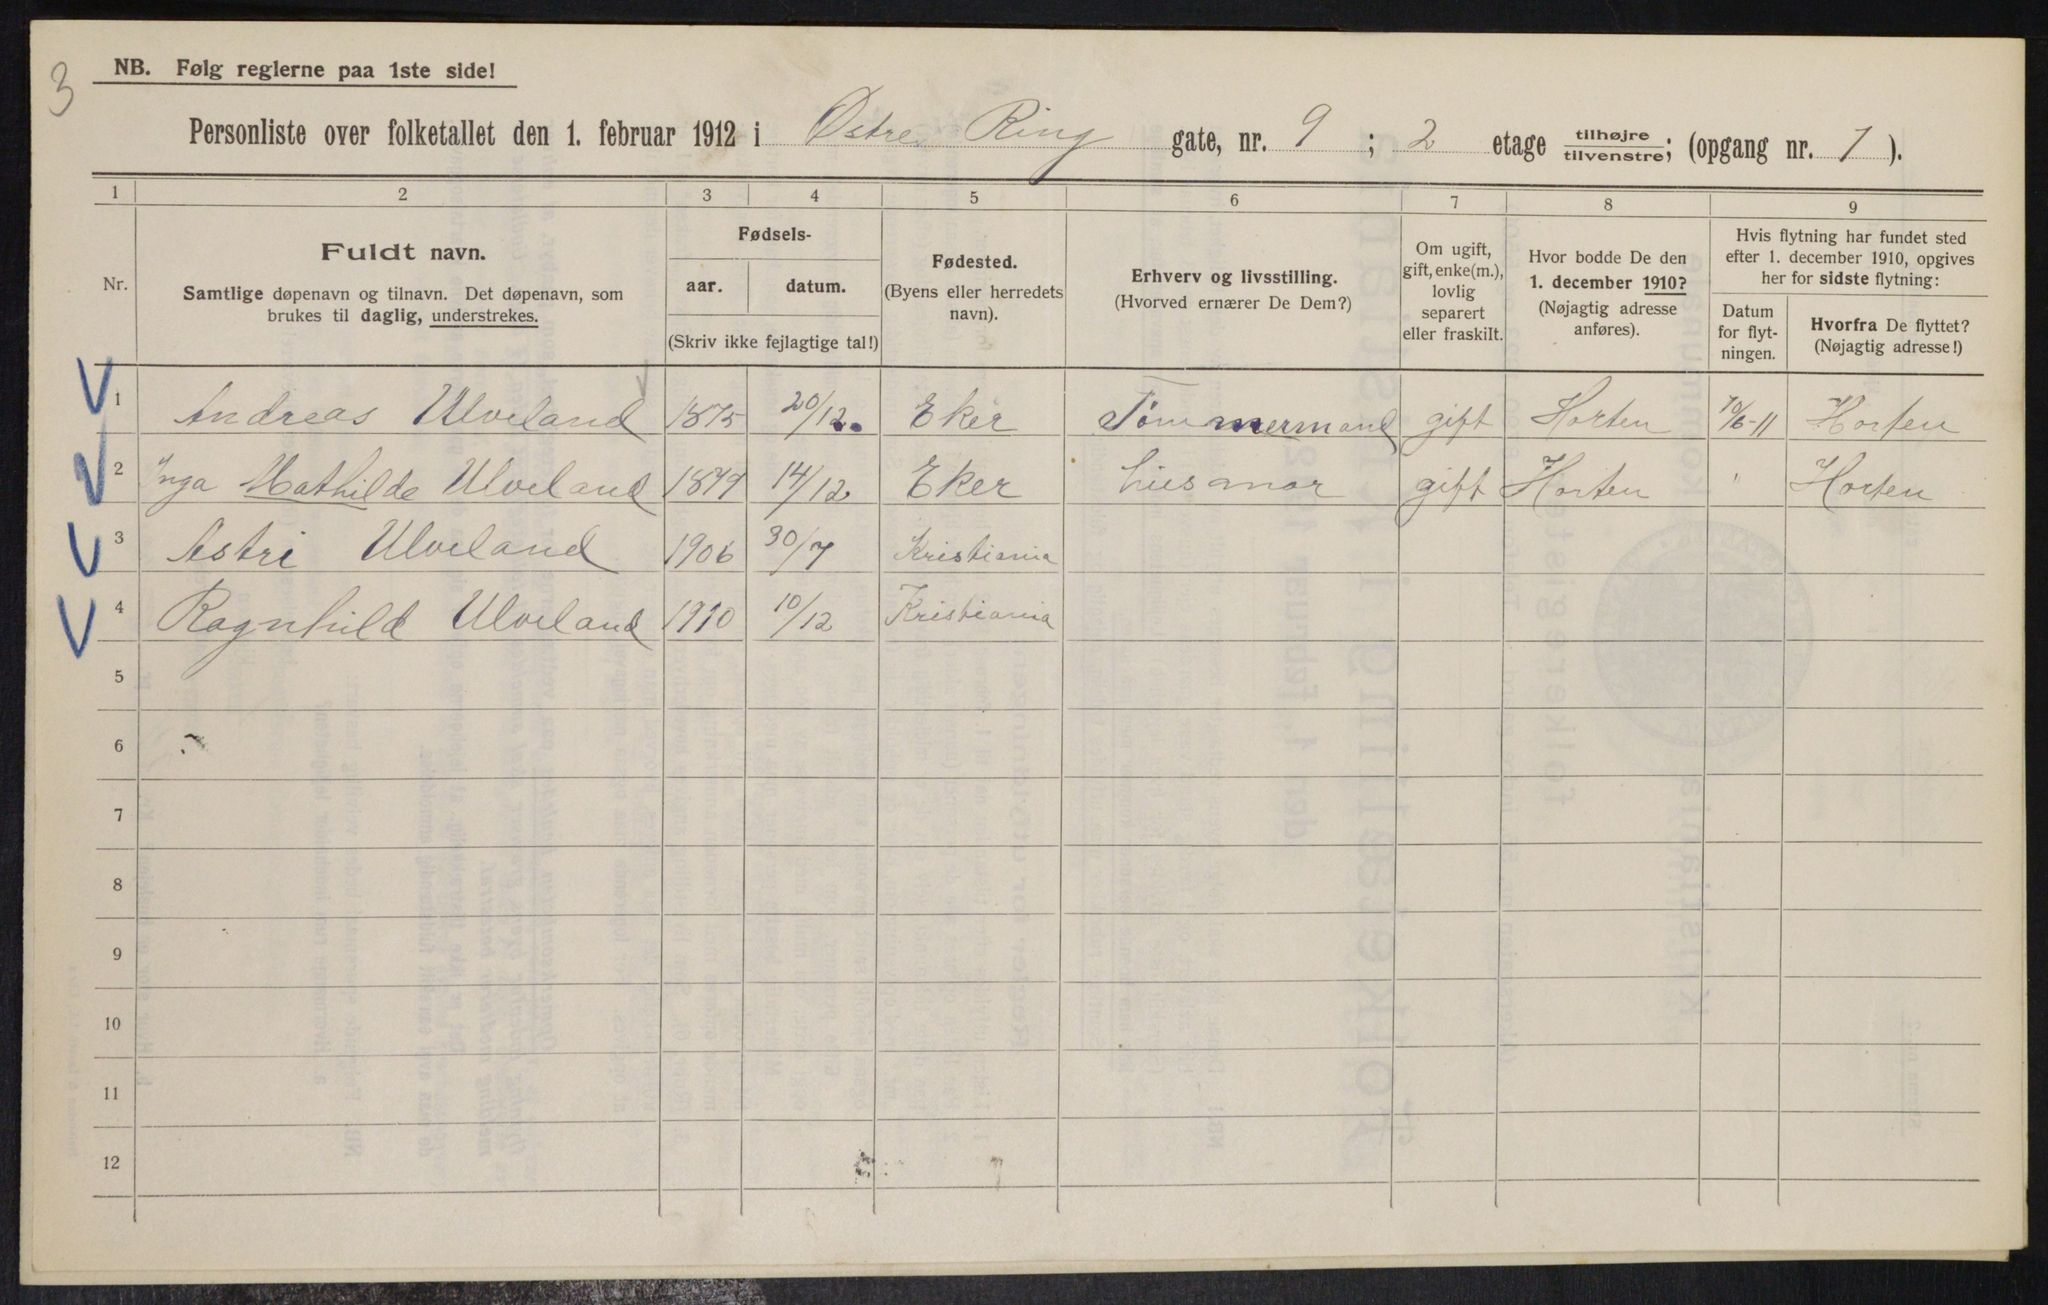 3
NB. Følg reglerne paa 1ste side!
Personliste over folketallet den 1. februar 1912 i Østre Ring gate, nr. 9 ; 2 etage tilhøjre/tilvenstre; (opgang nr. 1 ).
1 2 3 4 5 6 7 8 9
Nr.
Fuldt navn.
Samtlige døpenavn og tilnavn. Det døpenavn, som
brukes til daglig, understrekes.
Fødsels-
aar. datum.
(Skriv ikke fejlagtige tal!)
Fødested.
(Byens eller herredets
navn).
Erhverv og livsstilling.
(Hvorved ernærer De Dem?)
Om ugift,
gift, enke(m.),
lovlig
separert
eller fraskilt.
Hvor bodde De den
1. december 1910?
(Nøjagtig adresse
anføres).
Hvis flytning har fundet sted
efter 1. december 1910, opgives
her for sidste flytning:
Datum
for flyt-
ningen.
Hvorfra De flyttet?
(Nøjagtig adresse!)
1 Andreas Ulveland 1875 20/12. Eker Tømmermand gift Horten 10/6-11 Horten
2 Inga Mathilde Ulveland 1879 14/12 Eker Husmor gift Horten " Horten
3 Astri Ulveland 1906 30/7 Kristiania
4 Ragnhild Ulveland 1910 10/12 Kristiania
5
6
7
8
9
10
11
12